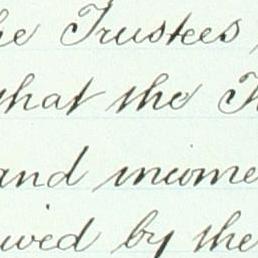 he Trustees
what the
and income
by the